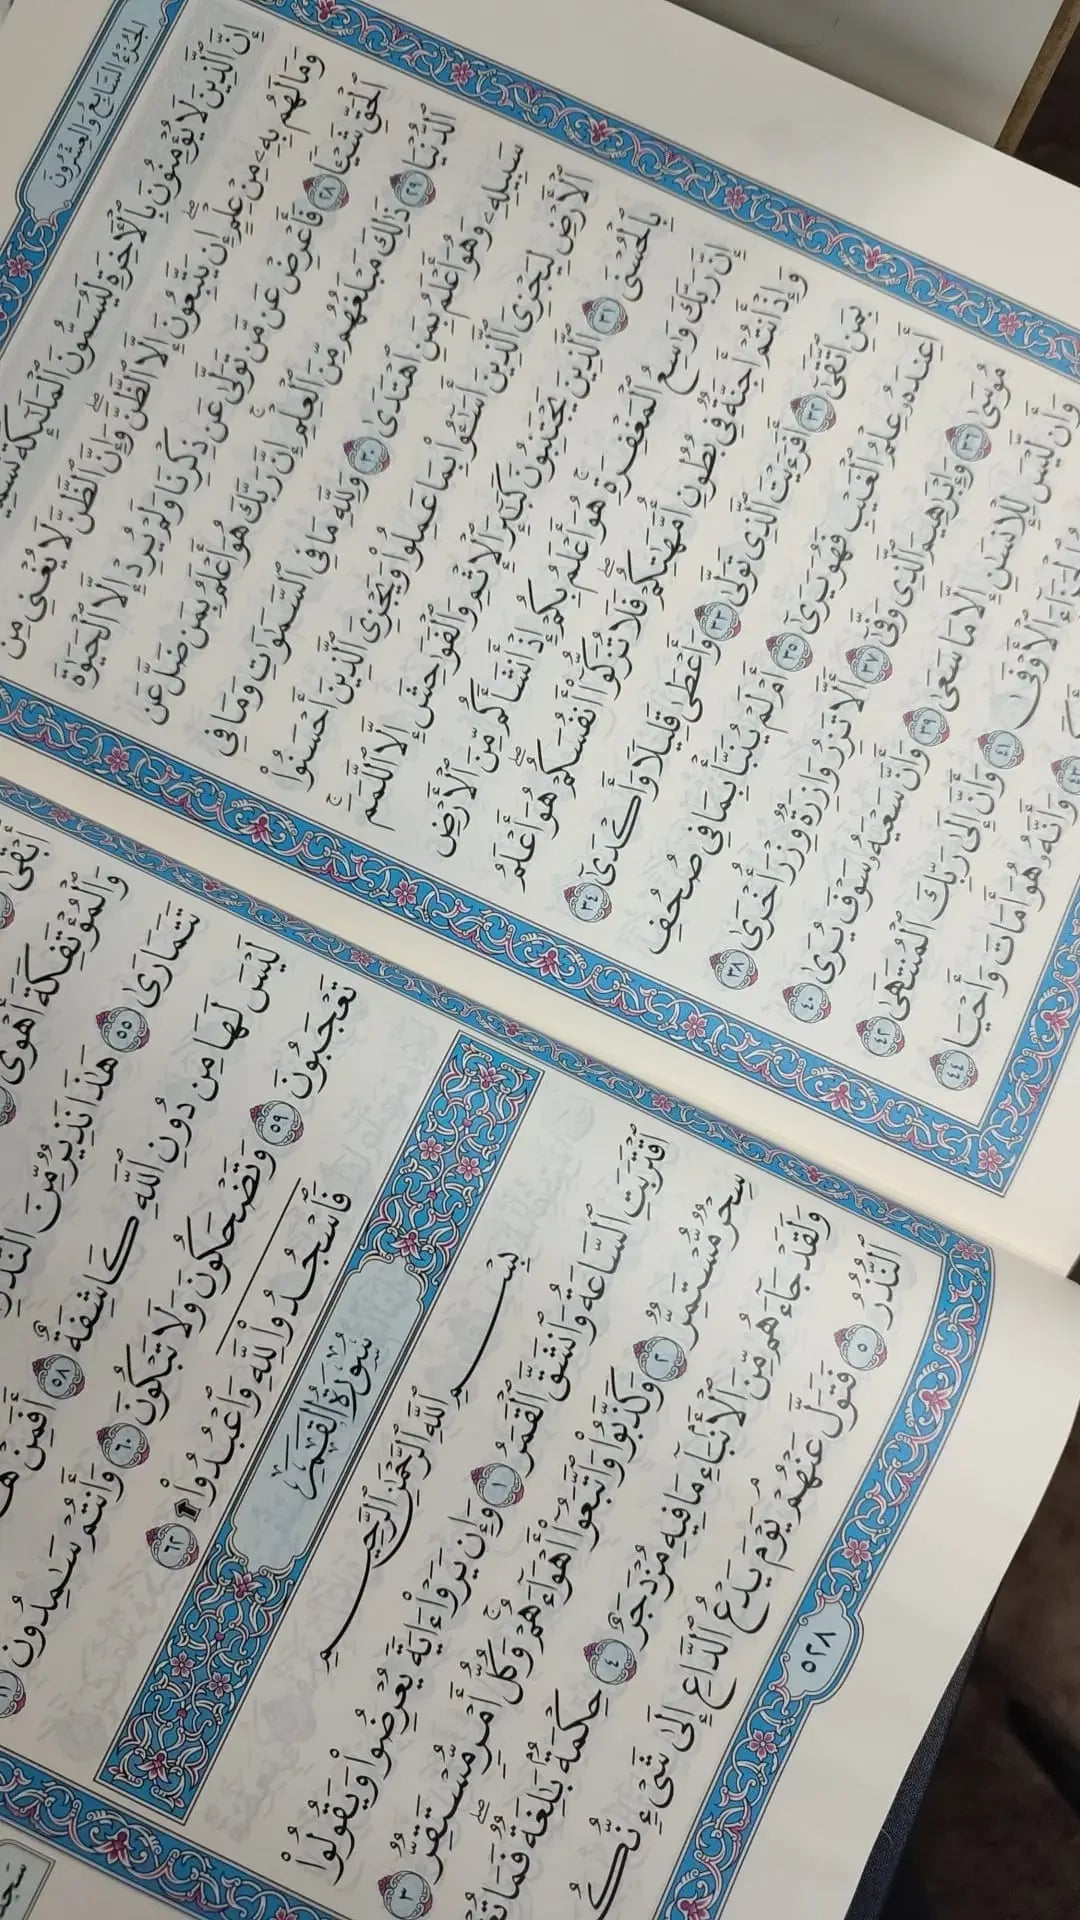 الجزء السابع والعشرون
إِنَّ ٱلَّذِينَ لَا يُؤْمِنُونَ بِٱلْءَاخِرَةِ لَيُسَمُّونَ ٱلْمَلَٰٓئِكَةَ
وَمَا لَهُم بِهِۦ مِنْ عِلْمٍ ۖ إِن يَتَّبِعُونَ إِلَّا ٱلظَّنَّ ۖ وَإِنَّ ٱلظَّنَّ لَا يُغْنِى مِنَ
ٱلْحَقِّ شَيْـًٔا ٢٨ فَأَعْرِضْ عَن مَّن تَوَلَّىٰ عَن ذِكْرِنَا وَلَمْ يُرِدْ إِلَّا ٱلْحَيَوٰةَ
ٱلدُّنْيَا ٢٩ ذَٰلِكَ مَبْلَغُهُم مِّنَ ٱلْعِلْمِ ۚ إِنَّ رَبَّكَ هُوَ أَعْلَمُ بِمَن ضَلَّ عَن
سَبِيلِهِۦ وَهُوَ أَعْلَمُ بِمَنِ ٱهْتَدَىٰ ٣٠ وَلِلَّهِ مَا فِى ٱلسَّمَٰوَٰتِ وَمَا فِى
ٱلْأَرْضِ لِيَجْزِىَ ٱلَّذِينَ أَسَٰٓـُٔوا۟ بِمَا عَمِلُوا۟ وَيَجْزِىَ ٱلَّذِينَ أَحْسَنُوا۟
بِٱلْحُسْنَى ٣١ ٱلَّذِينَ يَجْتَنِبُونَ كَبَٰٓئِرَ ٱلْإِثْمِ وَٱلْفَوَٰحِشَ إِلَّا ٱللَّمَمَ ۚ
إِنَّ رَبَّكَ وَٰسِعُ ٱلْمَغْفِرَةِ ۚ هُوَ أَعْلَمُ بِكُمْ إِذْ أَنشَأَكُم مِّنَ ٱلْأَرْضِ
وَإِذْ أَنتُمْ أَجِنَّةٌ فِى بُطُونِ أُمَّهَٰتِكُمْ ۖ فَلَا تُزَكُّوٓا۟ أَنفُسَكُمْ ۖ هُوَ أَعْلَمُ
بِمَنِ ٱتَّقَىٰٓ ٣٢ أَفَرَءَيْتَ ٱلَّذِى تَوَلَّىٰ ٣٣ وَأَعْطَىٰ قَلِيلًا وَأَكْدَىٰٓ ٣٤
أَعِندَهُۥ عِلْمُ ٱلْغَيْبِ فَهُوَ يَرَىٰٓ ٣٥ أَمْ لَمْ يُنَبَّأْ بِمَا فِى صُحُفِ
مُوسَىٰ ٣٦ وَإِبْرَٰهِيمَ ٱلَّذِى وَفَّىٰٓ ٣٧ أَلَّا تَزِرُ وَازِرَةٌ وِزْرَ أُخْرَىٰ ٣٨
وَأَن لَّيْسَ لِلْإِنسَٰنِ إِلَّا مَا سَعَىٰ ٣٩ وَأَنَّ سَعْيَهُۥ سَوْفَ يُرَىٰ ٤٠
ٱلْجَزَآءَ ٱلْأَوْفَىٰ ٤١ وَأَنَّ إِلَىٰ رَبِّكَ ٱلْمُنتَهَىٰ ٤٢
٤٣ وَأَنَّهُۥ هُوَ أَمَاتَ وَأَحْيَا ٤٤
أَبْقَىٰ
وَٱلْمُؤْتَفِكَةَ أَهْوَىٰ
تَتَمَارَىٰ ٥٥ هَٰذَا نَذِيرٌ مِّنَ ٱلنُّذُرِ
لَيْسَ لَهَا مِن دُونِ ٱللَّهِ كَاشِفَةٌ ٥٨ أَفَمِنْ
تَعْجَبُونَ ٥٩ وَتَضْحَكُونَ وَلَا تَبْكُونَ ٦٠ وَأَنتُمْ سَٰمِدُونَ
فَٱسْجُدُوا۟ لِلَّهِ وَٱعْبُدُوا۟ ۩ ٦٢
سُورَةُ القَمَرِ
بِسْمِ ٱللَّهِ ٱلرَّحْمَٰنِ ٱلرَّحِيمِ
ٱقْتَرَبَتِ ٱلسَّاعَةُ وَٱنشَقَّ ٱلْقَمَرُ ١ وَإِن يَرَوْا۟ ءَايَةً يُعْرِضُوا۟ وَيَقُولُوا۟
سِحْرٌ مُّسْتَمِرٌّ ٢ وَكَذَّبُوا۟ وَٱتَّبَعُوٓا۟ أَهْوَآءَهُمْ ۚ وَكُلُّ أَمْرٍ مُّسْتَقِرٌّ ٣
وَلَقَدْ جَآءَهُم مِّنَ ٱلْأَنۢبَآءِ مَا فِيهِ مُزْدَجَرٌ ٤ حِكْمَةٌۢ بَٰلِغَةٌ ۖ فَمَا
ٱلنُّذُرُ ٥ فَتَوَلَّ عَنْهُمْ ۘ يَوْمَ يَدْعُ ٱلدَّاعِ إِلَىٰ شَىْءٍ نُّكُرٍ
٥٢٨